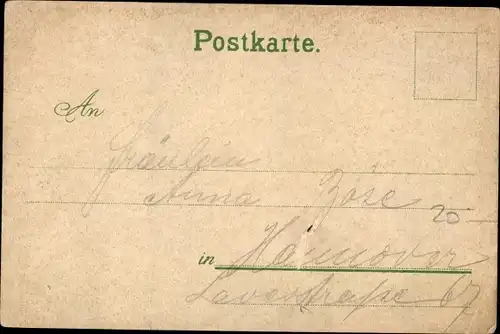 Postkarte.
An
Fräulein
Anna Böse
20 -
in Hannover
67